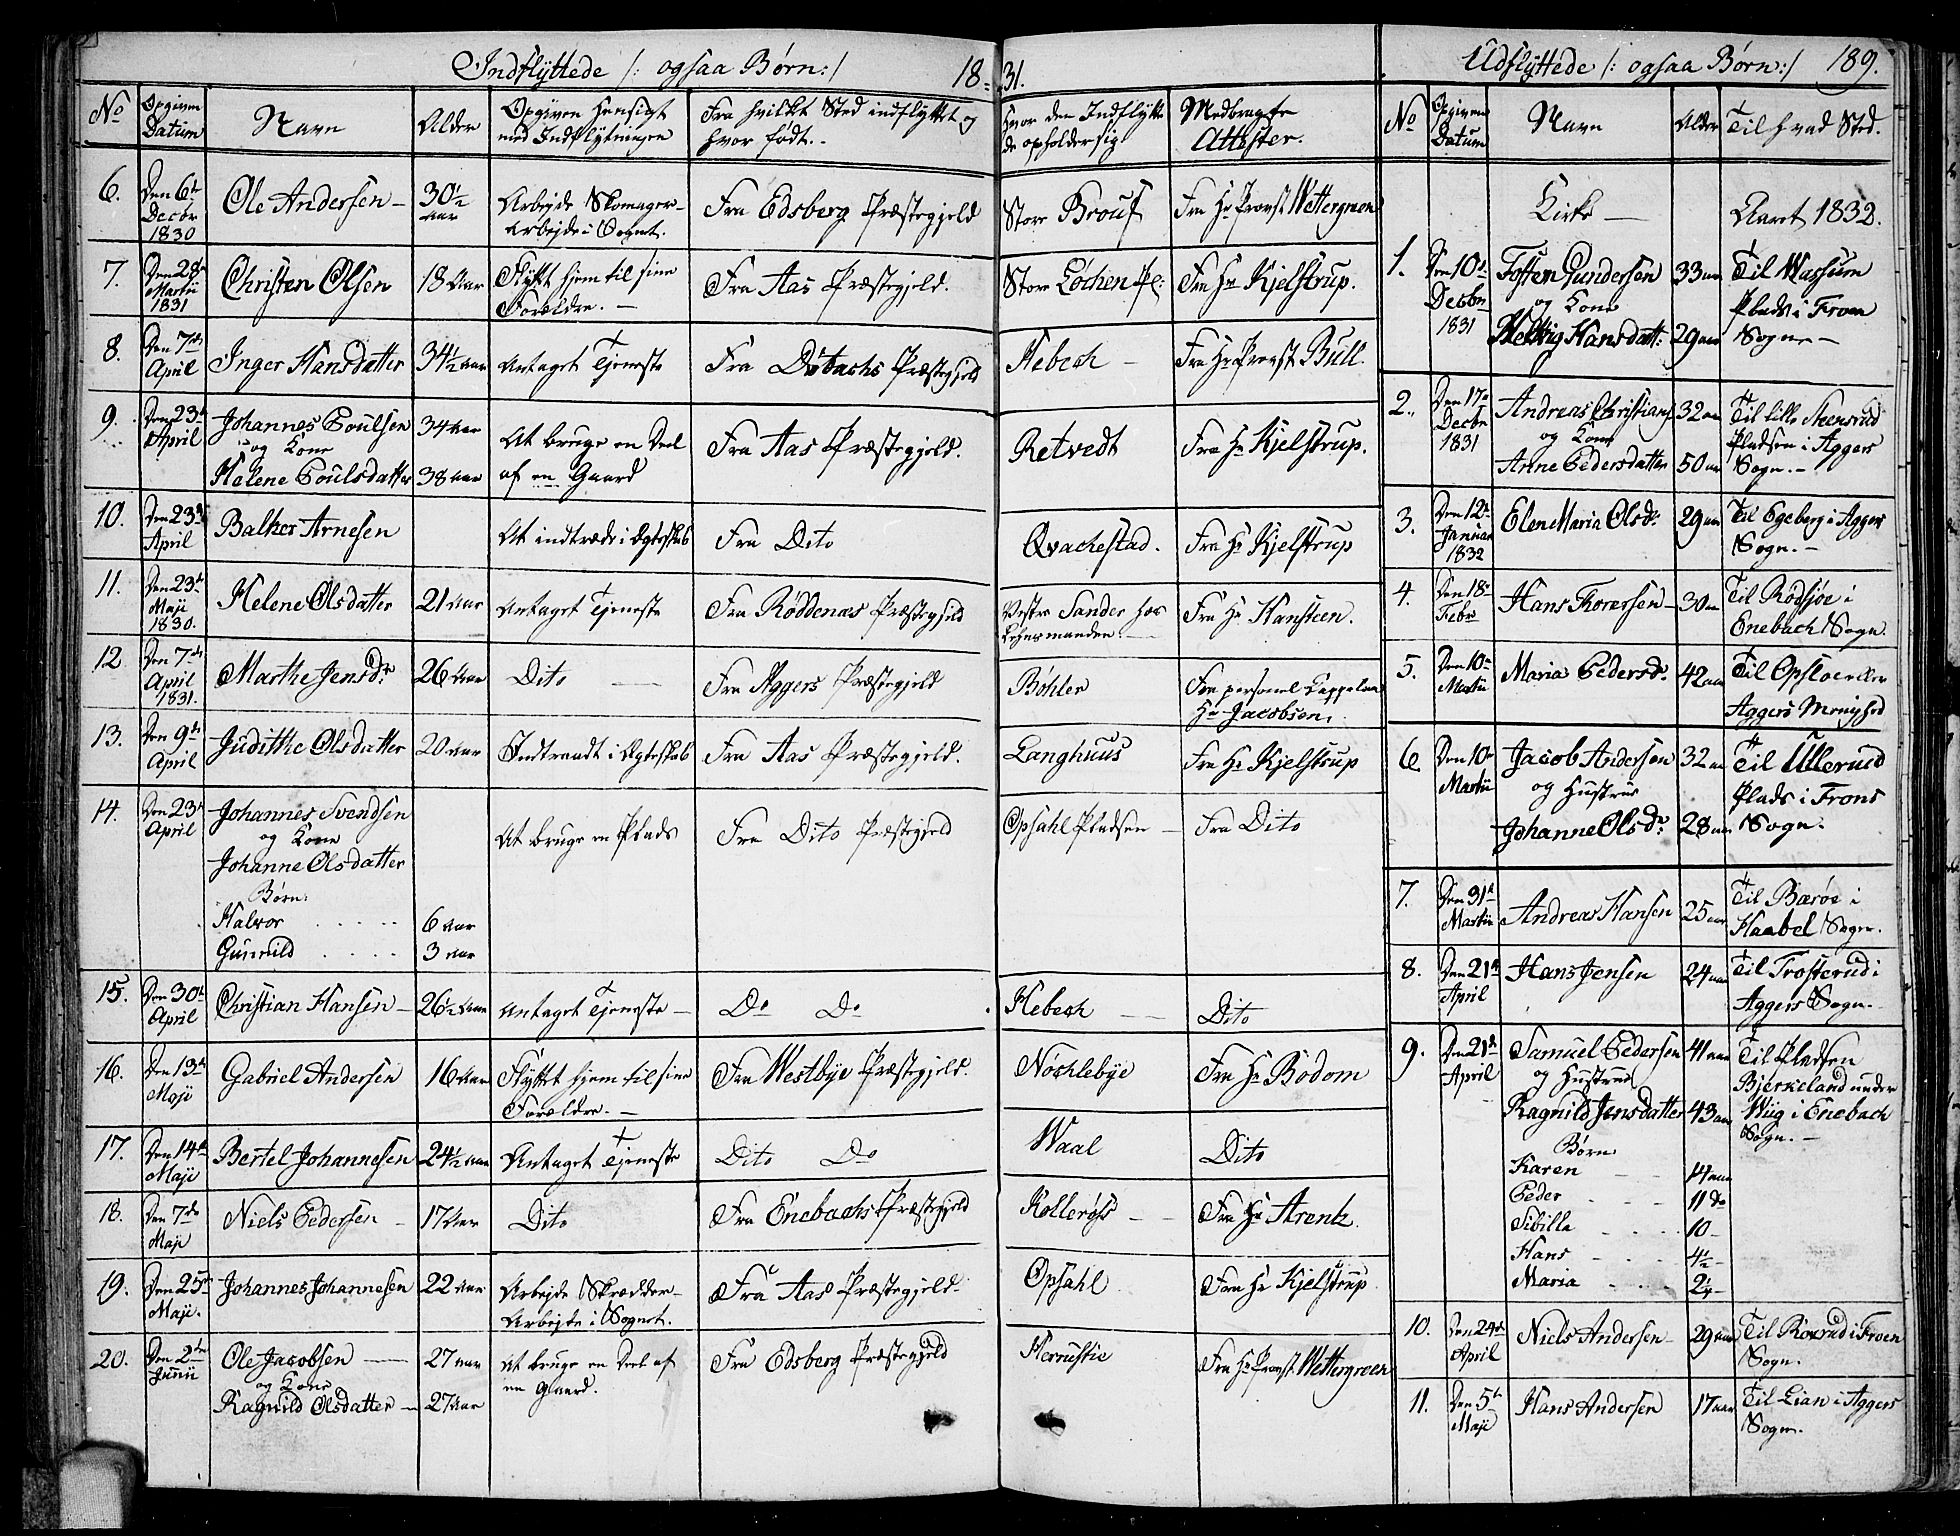 Indflyttede /: ogsaa Børn :/ 18 31.
No
Opgiven Datum
Navn
Alder
Opgiven Hensigt med Indflytningen
Fra hvilket Sted indflyttet og hvor født.
Hvor den Indflyttede opholder sig
Medbragte Attester.
6. Den 6te Decbr 1830 Ole Andersen 30½ aar Arbejde Skomager-Arbejde i Sognet. Fra Edsberg Præstegjeld Store Brouf Fra Hr Provst Wettergreen
7. Den 28de Martii 1831 Christen Olsen 18 Aar Flytt hjem til sine Forældre. Fra Aas Præstegjeld. Store Løchen Pl: Fra Hr Kjelstrup.
8. Den 7de April Inger Hansdatter 34½ aar Antaget Tjeneste Fra Dræbachs Præstegjeld Hebech Fra Hr Provst Bull
9. Den 23de April Johannes Poulsen 34 aar
og Kone
Helene Poulsdatter 38 aar At bruge en Deel af en Gaard Fra Aas Præstegjeld. Retvedt Fra Hr Kjelstrup.
10. Den 23de April Balzer Arnesen At indtræde i Ægteskab Fra Dito Qvachestad. Fra Hr Kjelstrup
11. Den 23de Maji 1830. Helene Olsdatter 21 aar Antaget Tjeneste Fra Røddenæs Præstegjeld Vestre Sander hos Lehnsmanden. Fra Hr Hansteen.
12 Den 7de April 1831. Marthe Jensdr 26 Aar Dito Fra Aggers Præstegjeld Bøhler Fra personel Cappelan Hr Jacobsen.
13. Den 9de April Judithe Olsdatter 20 aar Indtraadt i Ægteskab Fra Aas Præstegjeld. Langhuus Fra Hr Kjelstrup
14. Den 23de April Johannes Svendsen
og Kone
Johanne Olsdatter
Børn:
Halvor 6 aar
Gunnild 3 aar
At bruge en Plads Fra Dito Præstegjeld Opsahl Pladsen Fra Dito
15. Den 30te April Christian Hansen 26½ Aar Antaget Tjeneste Do Do Hebech Dito
16. Den 13de Maji Gabriel Andersen 16 Aar Flyttet hjem til sine Forældre. Fra Westbye Præstegjeld. Nøchlebye Fra Hr Bødom
17. Den 14de Maji Bertel Johannesen 24½ aar Antaget Tjeneste Dito Do Waal Dito
18. Den 7de Maji Niels Pedersen 17 Aar Dito Fra Enebachs Præstegjeld Kollerøss Fra Hr Arentz
19. Den 25de Maji. Johannes Johannesen 22 aar Arbejde Skrædder-Arbejde i Sognet. Fra Aas Præstegjeld. Opsahl Fra Hr Kjelstrup
20. Den 2den Junii Ole Jacobsen 27 aar
og Kone
Ragnild Olsdatter 27 aar At bruge en Deel af en Gaard. Fra Edsberg Præstegjeld Herrustie Fra Hr Provst Wettergreen
Udflyttede /: ogsaa Børn :/ 189.
No
Opgiven Datum
Navn
Alder
Til hvad Sted.
Aaret 1832.
1. Den 10de Decbr 1831 Tosten Gundersen 33 aar
og Kone
Helvig Hansdatt: 29 aar Til Wassum Plads i Froen Sogn
2. Den 17de Decbr 1831 Andreas Christians 32 aar
og Kone
Anne Pedersdatter 50 aar Til lille Steensrud Pladsen i Aggers Sogn.
3. Den 12te Januar 1832 Elene Maria Olsdr 29 aar Til Egeberg i Aggers Sogn.
4. Den 18de Febr Hans Torersen 30 aar Til Rødsjøe i Enebach Sogn.
5. Den 10de Martii Maria Pedersdr 42 aar Til Opsloe eller Aggers Menighed
6 Den 10de Martii Jacob Andersen 32 aar
og Hustrue
Johanne Olsdr 28 aar Til Ullerud Plads i Frons Sogn.
7. Den 31te Martii Andreas Hansen 25 aar Til Bærøe i Haabel Sogn.
8. Den 21de April Hans Jensen 24 aar Til Trosterud i Aggers Sogn.
9. Den 21de April Samuel Pedersen 41 aar
og Hustrue
Ragnild Jensdatter 43 aar
Børn
Karen 14 aar
Peder 11 do
Sibilla 10
Hans 4½
Maria 2¼
Til Pladsen Bjerkeland under Wiig i Enebach Sogn.
10. Den 24de April Niels Andersen 29 aar Til Roxrud i Froen Sogn.
11. Den 5te Maji Hans Andersen 17 aar Til Lian i Aggers Sogn.